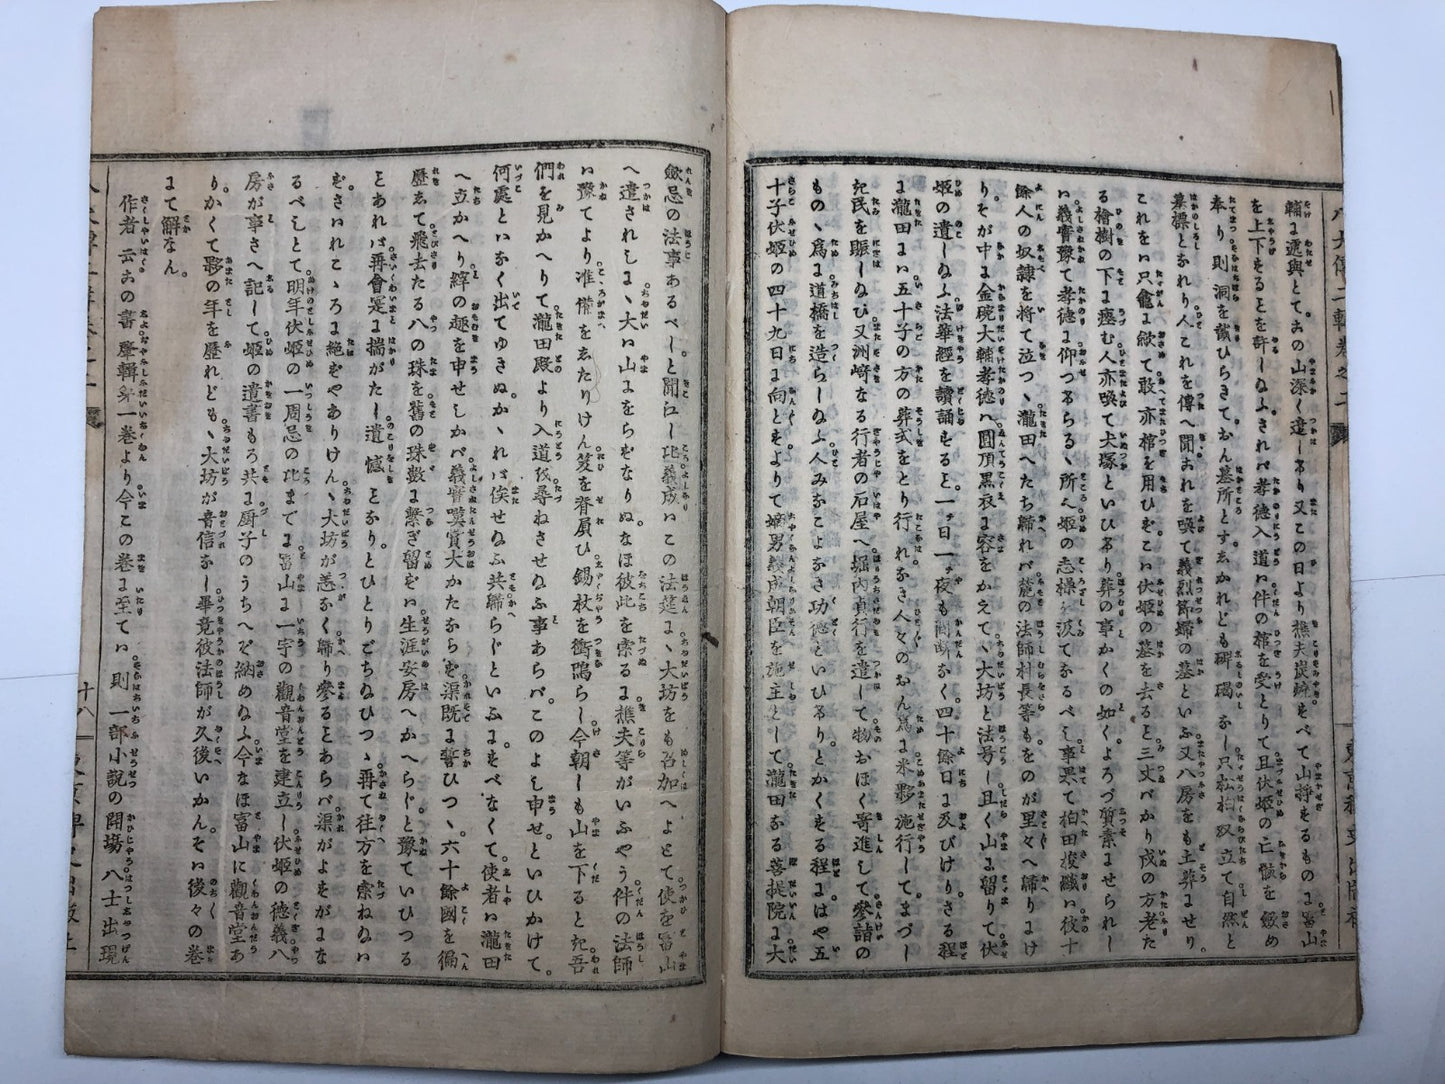 輔に逓與とてこの山深く遣しけり又この日より樵夫炭焼をすべて山挊するものに富山
を上下することを許し給ふ。されば孝徳入道は件の棺を受とりて且伏姫の亡骸を斂め
奉り則洞を鑿ひらきておん墓所とす。しかれども碑碣なし只松柏双立て自然と
墓標となれり人これを傳へ聞これを喚て義烈節婦の墓といふ又八房をも土葬にせり。
これをは只龕に斂て敢亦棺を用ひず。こは伏姫の墓を去ると三丈ばかり戌の方老た
る檜樹の下に瘞む人亦喚て犬塚といひけり葬の事かくの如くよろづ質素にせられし
は義實豫て孝徳に仰つけらるゝ所へ姫の志操を汲てなるべし事果て柏田梭織は彼十
餘人の奴隷を将て泣つゝ瀧田へたち歸れば篭の法師村長等もをのが里々へ歸りにけ
りそが中に金碗大輔孝徳は圓頂黒衣に容をかえてゝ大坊と法号し且く山に留りて伏
姫の遺し給ふ法華經を讀誦すると。一ッ日一ッ夜も間断なく四十餘日に及びけり。さる程
に瀧田には五十子の方の葬式をとり行れなき人々のおん為に米夥施行して。まづし
き民を賑し給ひ又洲崎なる行者の石屋へ堀内貞行を遣して物おほく寄進して參詣の
もの、為に道橋を造らし給ふ人みなこよなき功徳といひけり。とかくする程にはや五
十子伏姫の四十九日に向とすよりて嫡男義成朝臣を施主として瀧田なる菩提院に大
斂忌の法事あるべしと聞江し比義成はこの法莚にゝ大坊をも召加へよとて使を富山
へ遣されしにゝ大は山にをらずなりぬ。なほ彼此を索るに樵夫等がいふやう件の法師
は豫てより准備をしたりけん笈を脊屓ひ錫杖を衝鳴らし今朝しも山を下ると記吾
們を見かへりて瀧田殿より入道を尋ねさせ給ふ事あらば。このよし申せ。といひかけて。
何處とはなく出てゆきぬ。かゝれば俟せ給ふ共歸らじといふにすべなくて使者は瀧田
へ立かへり縡の趣を申せしかば義實嘆賞大かたならず渠既に誓ひつゝ。六十餘國を徧
歴して飛去たる八の珠を舊の珠数に繋ぎ留ずは生涯安房へかへらじと豫ていひつる
とあれば再會是に揣がたし遺憾となりとひとりごち給ひつゝ再て往方を索ね給は
ず。されこゝろに絶ずやありけんゝ大坊が恙なく歸り參るとあらば渠がよすがにな
るべしとて明年伏姫の一周忌の比までに富山に一宇の觀音堂を建立し伏姫の徳義八
房が事さへ記して姫の遺書もろ共に厨子のうちへぞ納め給ふ今なほ富山に觀音堂あ
り。かくて夥の年を歴れども、ゝ大坊が音信なし畢竟彼法師が久後いかん。そは後々の巻
にて解なん。
作者云この書肇輯第一巻より今この巻に至ては則一部小説の開塲八士出現